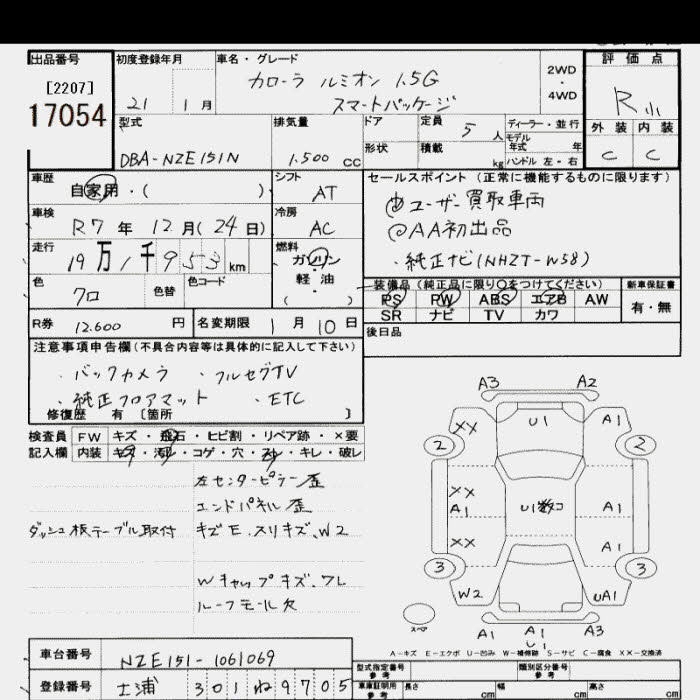 出品番号 初度登録年月 車名・グレード 評価点
[2207]
17054
21 1月
カローラ ルミオン 1.5G
スマートパッケージ
2WD
・
4WD
R小
外装 内装
C C
型式 排気量 ドア 定員 5人 ディーラー・並行
モデル
年式 年
形状 積載 kg ハンドル 左・右
DBA-NZE151N 1.500 cc
車歴 自家用・( ) シフト AT
車検 R7年 12月(24日) 冷房 AC
走行 19万1千953km
燃料 ガソリン
・
軽・油
( )
色 クロ 色替 色コード
R券 12.600 円 名変期限 1月10日
セールスポイント(正常に機能するものに限ります)
ユーザー買取車両
◎AA初出品
・純正ナビ(NHZT-W58)
装備品(純正品に限り〇をつけてください) 新車保証書
PS PW ABS エアB AW 有・無
SR ナビ TV カワ
後日品
注意事項申告欄(不具合内容等は具体的に記入して下さい)
・バックカメラ ・フルセグTV
・純正フロアマット ・ETC
修復歴 有 〔箇所 〕
検査員 FW キズ・飛石・ヒビ割・リペア跡・×要
記入欄 内装 キズ・汚れ・コゲ・穴・スレ・キレ・破レ
左センターピラー歪
エンドパネル歪
ダッシュ板テーブル取付 キズE、スリキズ、W2
Wキャップキズ、ワレ
ルーフモール欠
A3 A2
XX U1 A1
2 2
XX
A1 U1数コ A1
XX A1
3 3
W2 UA1
スペア A1 A1 A3
U1
A-キズ E-エクボ U-凹み W-補修跡 S-サビ C-腐食 XX-交換済
車台番号 NZE151-1061069
登録番号 土浦 301ね9705
型式指定番号 類別区分番号
参考 参考
車庫証明用 長さ cm 幅 cm 高さ cm
参考